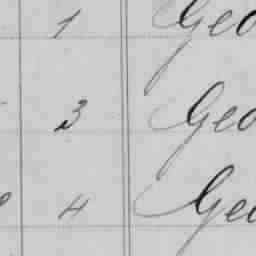 1 Geo
3 Geo
4 Geo